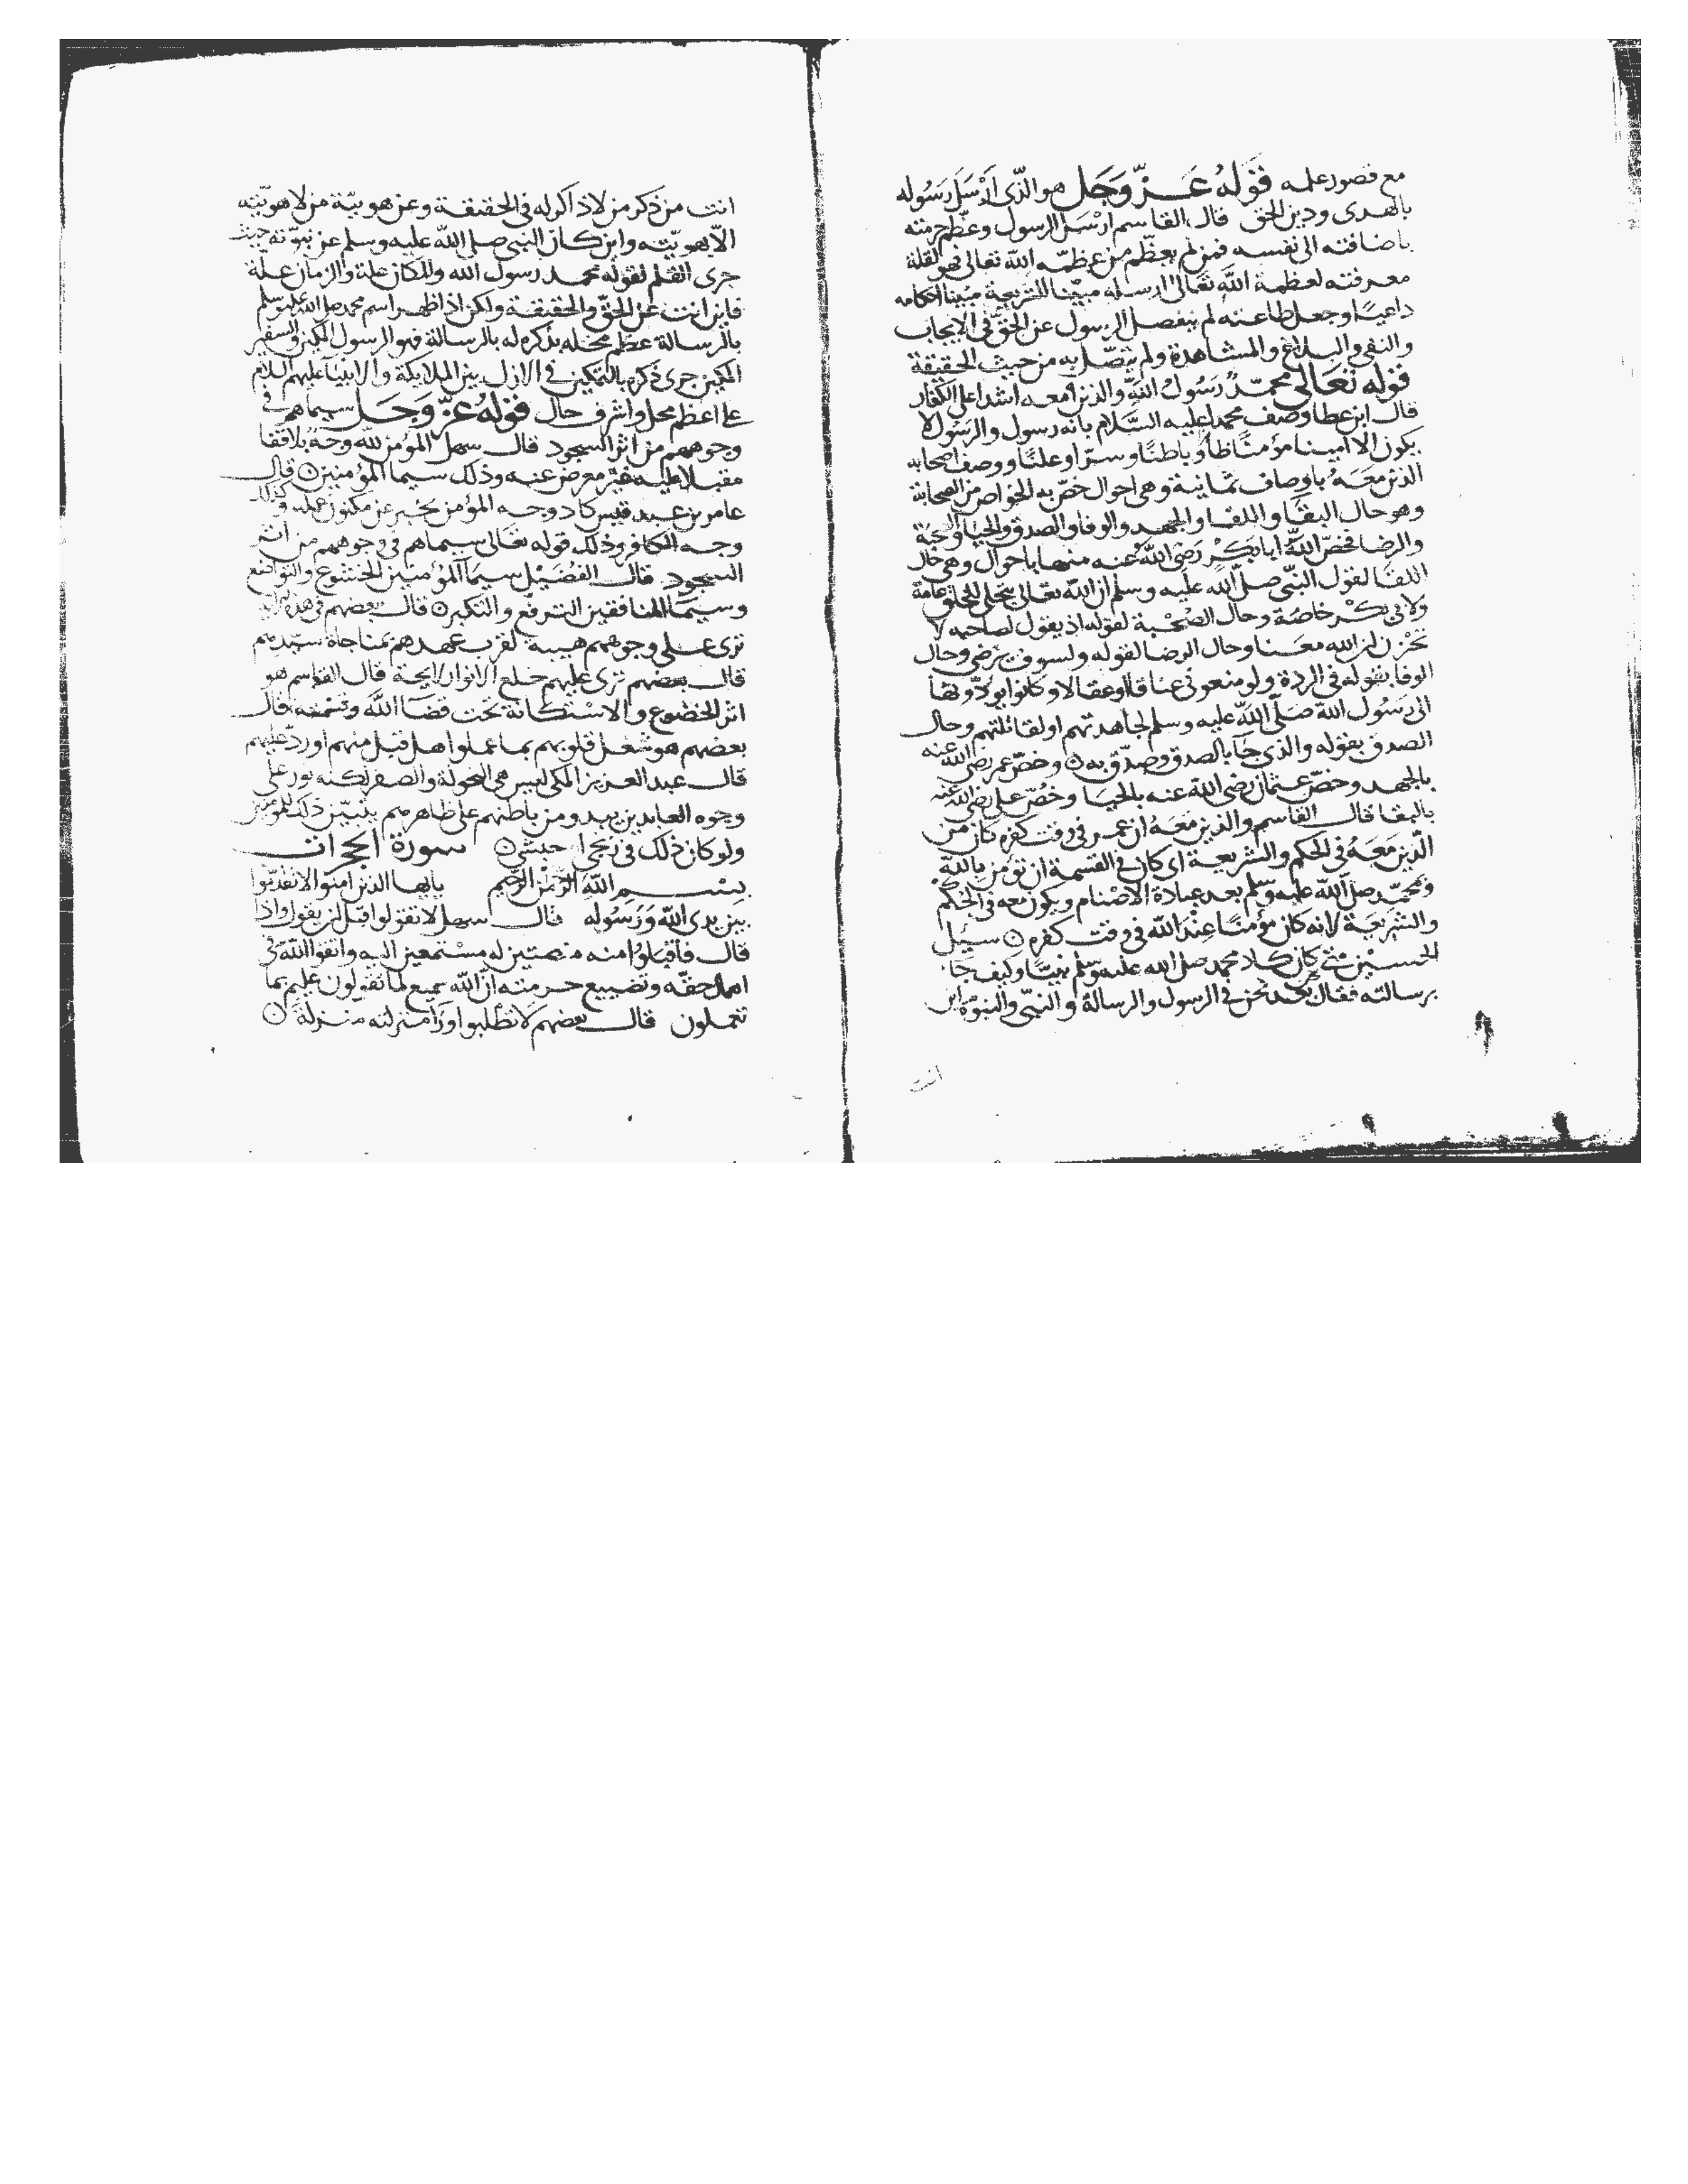 مع قصور علمه قوله عز وجل هو الذى ارسل رسوله
بالهدى ودين الحق قال القاسم ارسل الرسول وعظم حرمته
باضافته الى نفسه فمن لم يعظم من عظمه الله تعالى فهو لقلة
معرفته لعظمة الله تعالى ارسله مبينا للشريعة مبينا احكامه
داعيا وجعل طاعته لم ينفصل الرسول عن الحق فى الايجاب
والنفى والبلاغ والمشاهدة ولم يتصل به من حيث الحقيقة
قوله تعالى محمد رسول الله والذين معه اشدا على الكفار
قال ابن عطا وصف محمدا عليه السلام بانه رسول والرسول لا
يكون الا امينا مؤمنا ظاوباطنا وسرا وعلنا ووصف اصحابه
الذين معه باوصاف ثمانية وهى احوال خص به الخواص من الصحابة
وهو حال البقا واللقا والجهد والوفا والصدق والحيا والصحبة
والرضا فخص الله ابا بكر رضى الله عنه منها باحوال وهى حال
اللقا لقول النبى صلى الله عليه وسلم ان الله تعالى يتجلى للخلق عامة
ولابى بكر خاصة وحال الصحبة لقوله اذ يقول لصاحبه لا
تحزن ان الله معنا وحال الرضا لقوله ولسوف يرضى وحال
الوفا بقوله فى الردة ولو منعونى عناقا او عقالا وكانوا يودونها
الى رسول الله صلى الله عليه وسلم لجاهدتهم او لقاتلتهم وحال
الصدق بقوله والذى جا بالصدق وصدق به وخص عمر رضى الله عنه
بالجهد وخص عثمان رضى الله عنه بالحيا وخص على رضى الله عنه
بالبقا قال القاسم والذين معه ان عمر فى وقت كفره كان من
الذين معه فى الحكم والشريعة اى كان فى القسمة ان تؤمن بالله
ومحمد صلى الله عليه وسلم بعد عبادة الاصنام ويكون معه فى الحكم
والشريعة لانه كان مؤمنا عند الله فى وقت كفره سئل
الحسين متى كان محمد صلى الله عليه وسلم نبيا وكيف جا
برسالته فقال بعد نحن فى الرسول والرسالة والنبى والنبوة اين
انت
انت من ذكر من لا ذاكر له فى الحقيقة وعن هوية من لا هوية
الا بهويته واين كان النبى صلى الله عليه وسلم عن نبوته حيث
جرى القلم بقوله محمد رسول الله والمكان علة والزمان علة
فاين انت عن الحق والحقيقة ولكن اذا ظهر اسم محمد صلى الله عليه وسلم
بالرسالة عظم محله بذكره له بالرسالة فهو الرسول المكين والسفير
المكين جرى ذكره بالتمكين فى الازل بين الملايكة والانبيا عليهم السلام
على اعظم محل واشرف حال قوله عز وجل سيماهم فى
وجوههم من اثر السجود قال سهل المؤمن لله وجه بلا قفا
مقبلا عليه غير معرض عنه وذلك سيما المؤمنين قال
عامر بن عبد قيس كاد وجه المؤمن يخبر عن مكنون عمله وكذلك
وجه الكافر وذلك قوله تعالى سيماهم فى وجوههم من اثر
السجود قال الفضيل سيما المؤمنين الخشوع والتواضع
وسيما المنافقين الترفع والتكبر قال بعضهم فى هذه الاية
ترى على وجوههم هيبة لقرب عهدهم بمناجاة سيدهم
قال بعضهم ترى عليهم خلع الانوار لايحة قال القاسم هو
اثر الخضوع والاستكانة تحت قضا الله وقسمته قال
بعضهم هو شغل قلوبهم بما عملوا هل قبل منهم او رد عليهم
قال عبد العزيز المكى ليس هى النحولة والصفر لكنه نور على
وجوه العابدين يبدو من باطنهم على ظاهرهم يتبين ذلك للمؤمنين
ولو كان ذلك فى زنجى او حبشى سورة الحجرات
بسم الله الرحمن الرحيم يايها الذين امنوا لا تقدموا
بين يدى الله ورسوله قال سهل لا تقولوا قبل ان يقول واذا
قال فاقبلوا منه منصتين له مستمعين اليه واتقوا الله فى
اهمال حقه وتضييع حرمته ان الله سميع لما تقولون عليم بما
تعملون قال بعضهم لا تطلبوا ورا منزلته منزلة